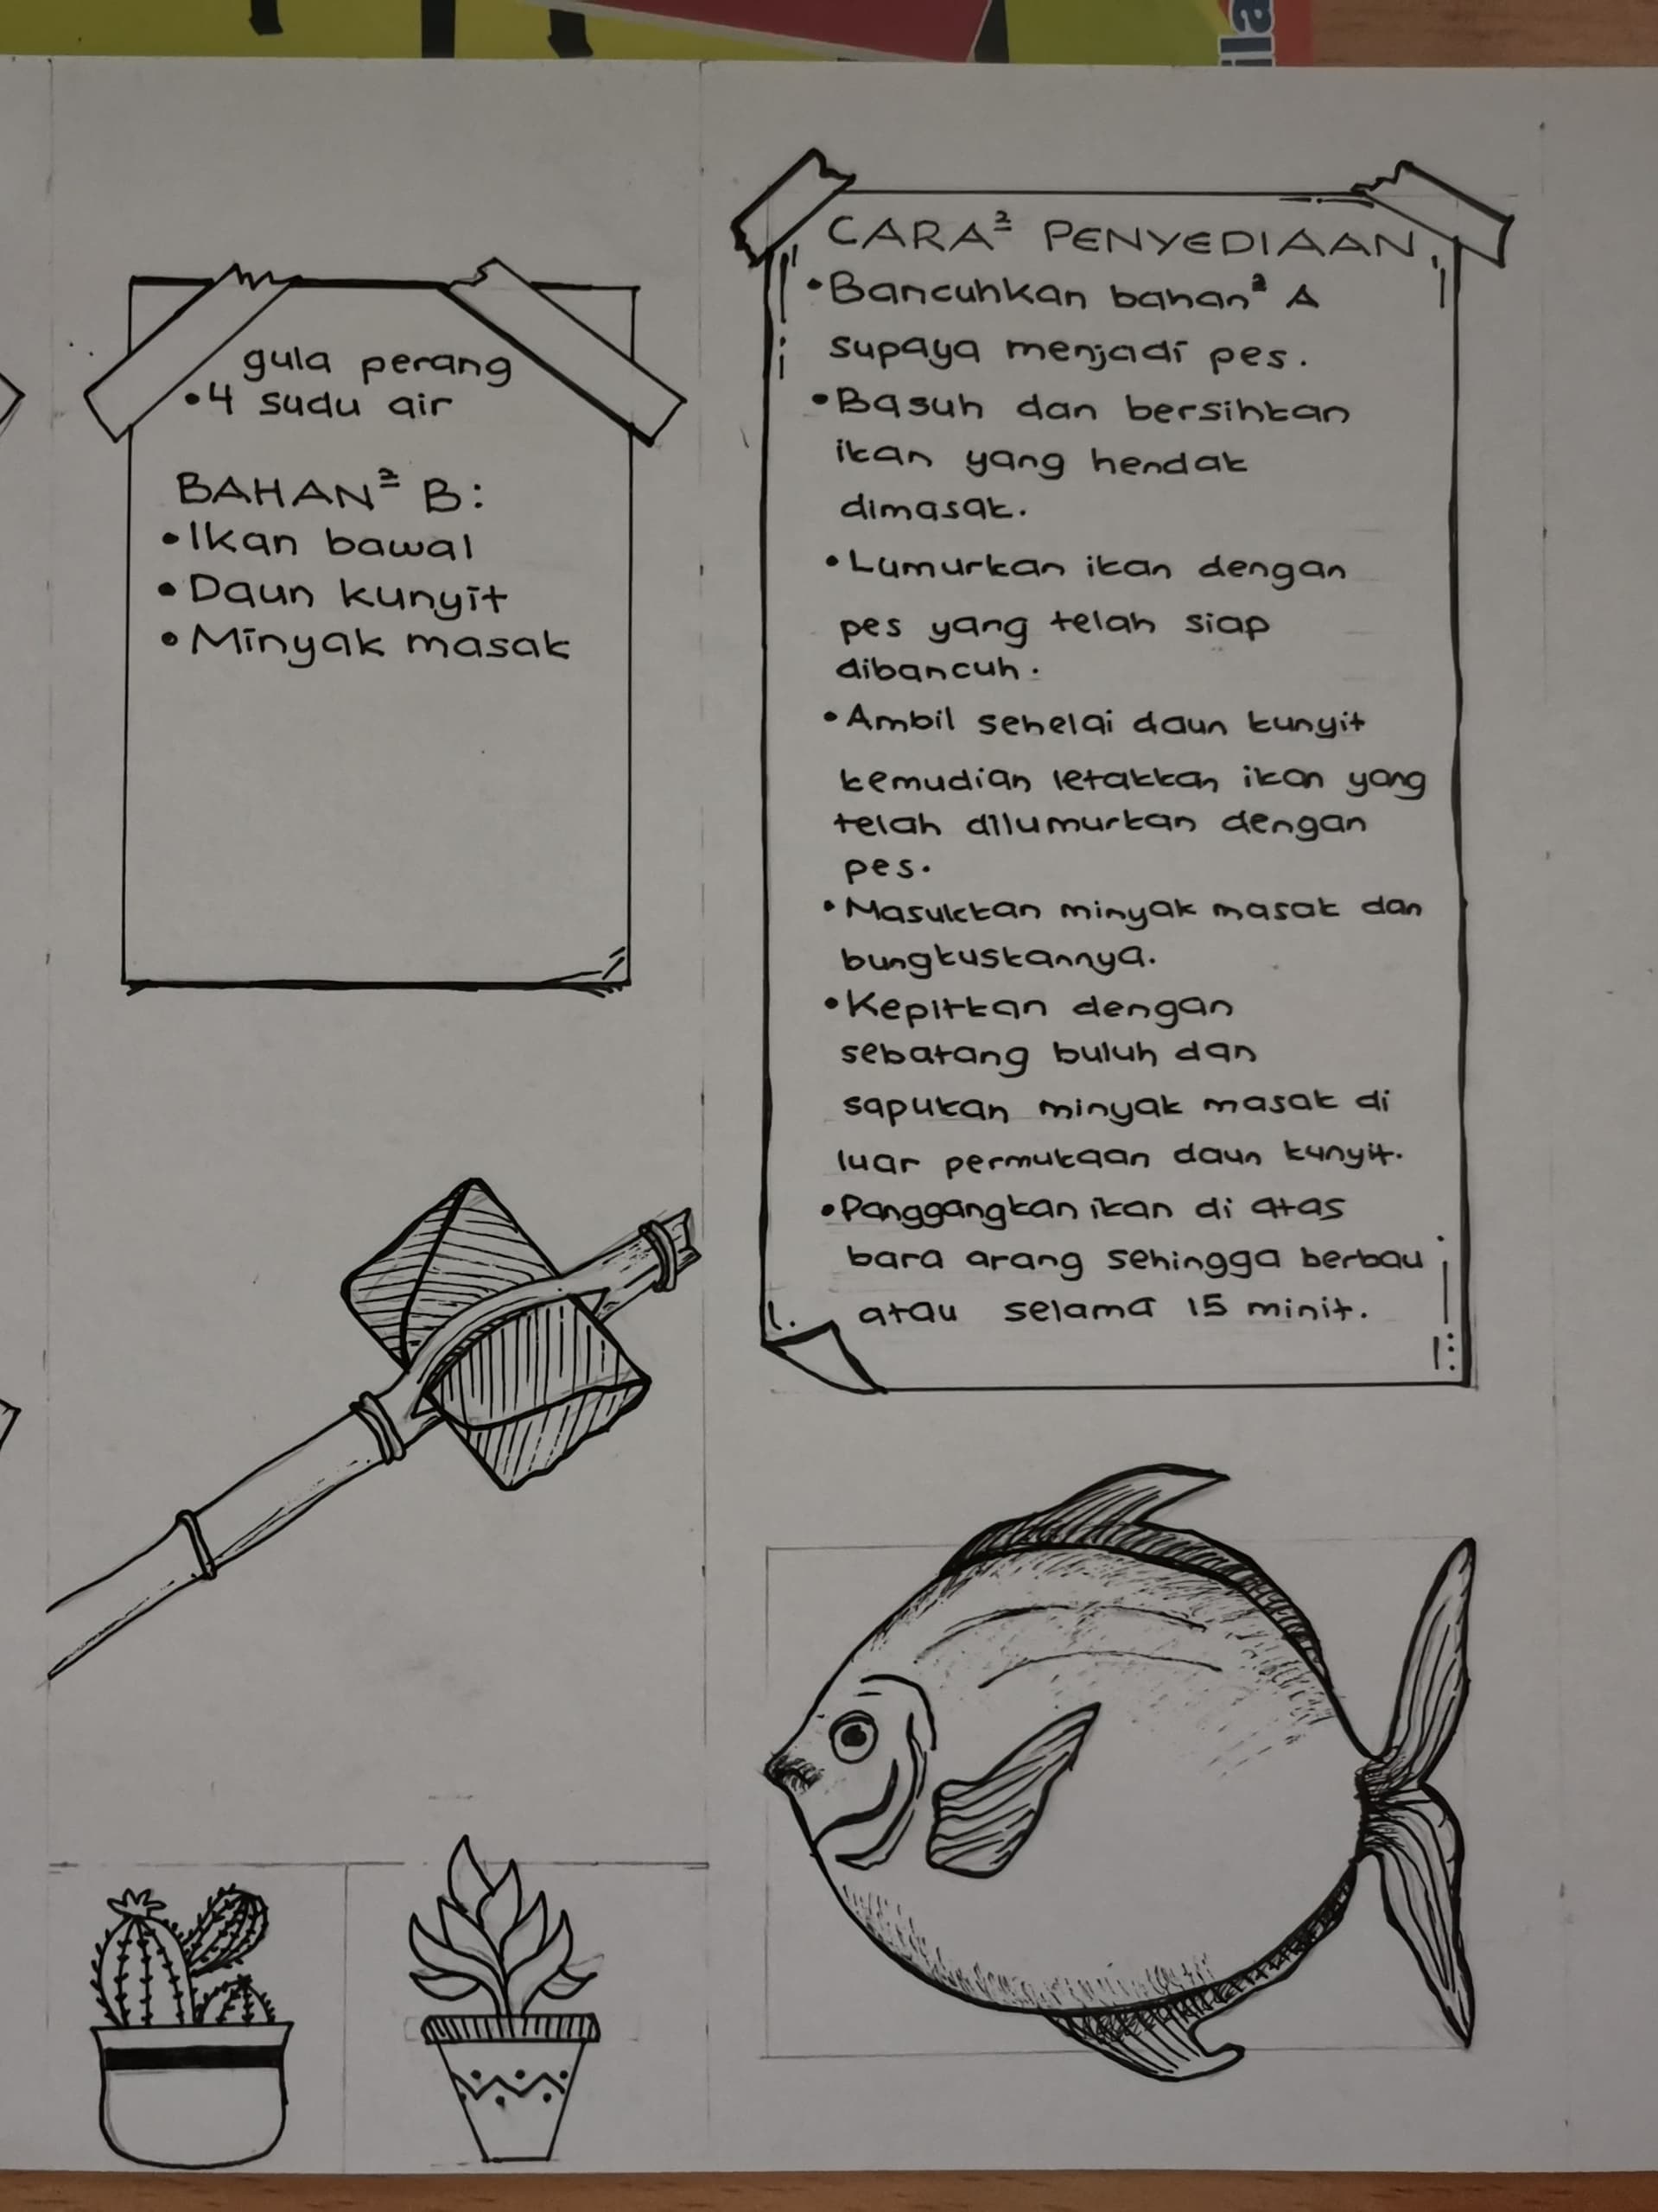 ila
gula perang
•4 sudu air
BAHAN² B:
•Ikan bawal
•Daun kunyit
•Minyak masak
CARA² PENYEDIAAN
•Bancuhkan bahan² A
supaya menjadi pes.
•Basuh dan bersihkan
ikan yang hendak
dimasak.
•Lumurkan ikan dengan
pes yang telah siap
dibancuh.
•Ambil sehelai daun kunyit
kemudian letakkan ikan yang
telah dilumurkan dengan
pes.
•Masukkan minyak masak dan
bungkuskannya.
•Kepitkan dengan
sebatang buluh dan
sapukan minyak masak di
luar permukaan daun kunyit.
•Panggangkan ikan di atas
bara arang sehingga berbau
atau selama 15 minit.